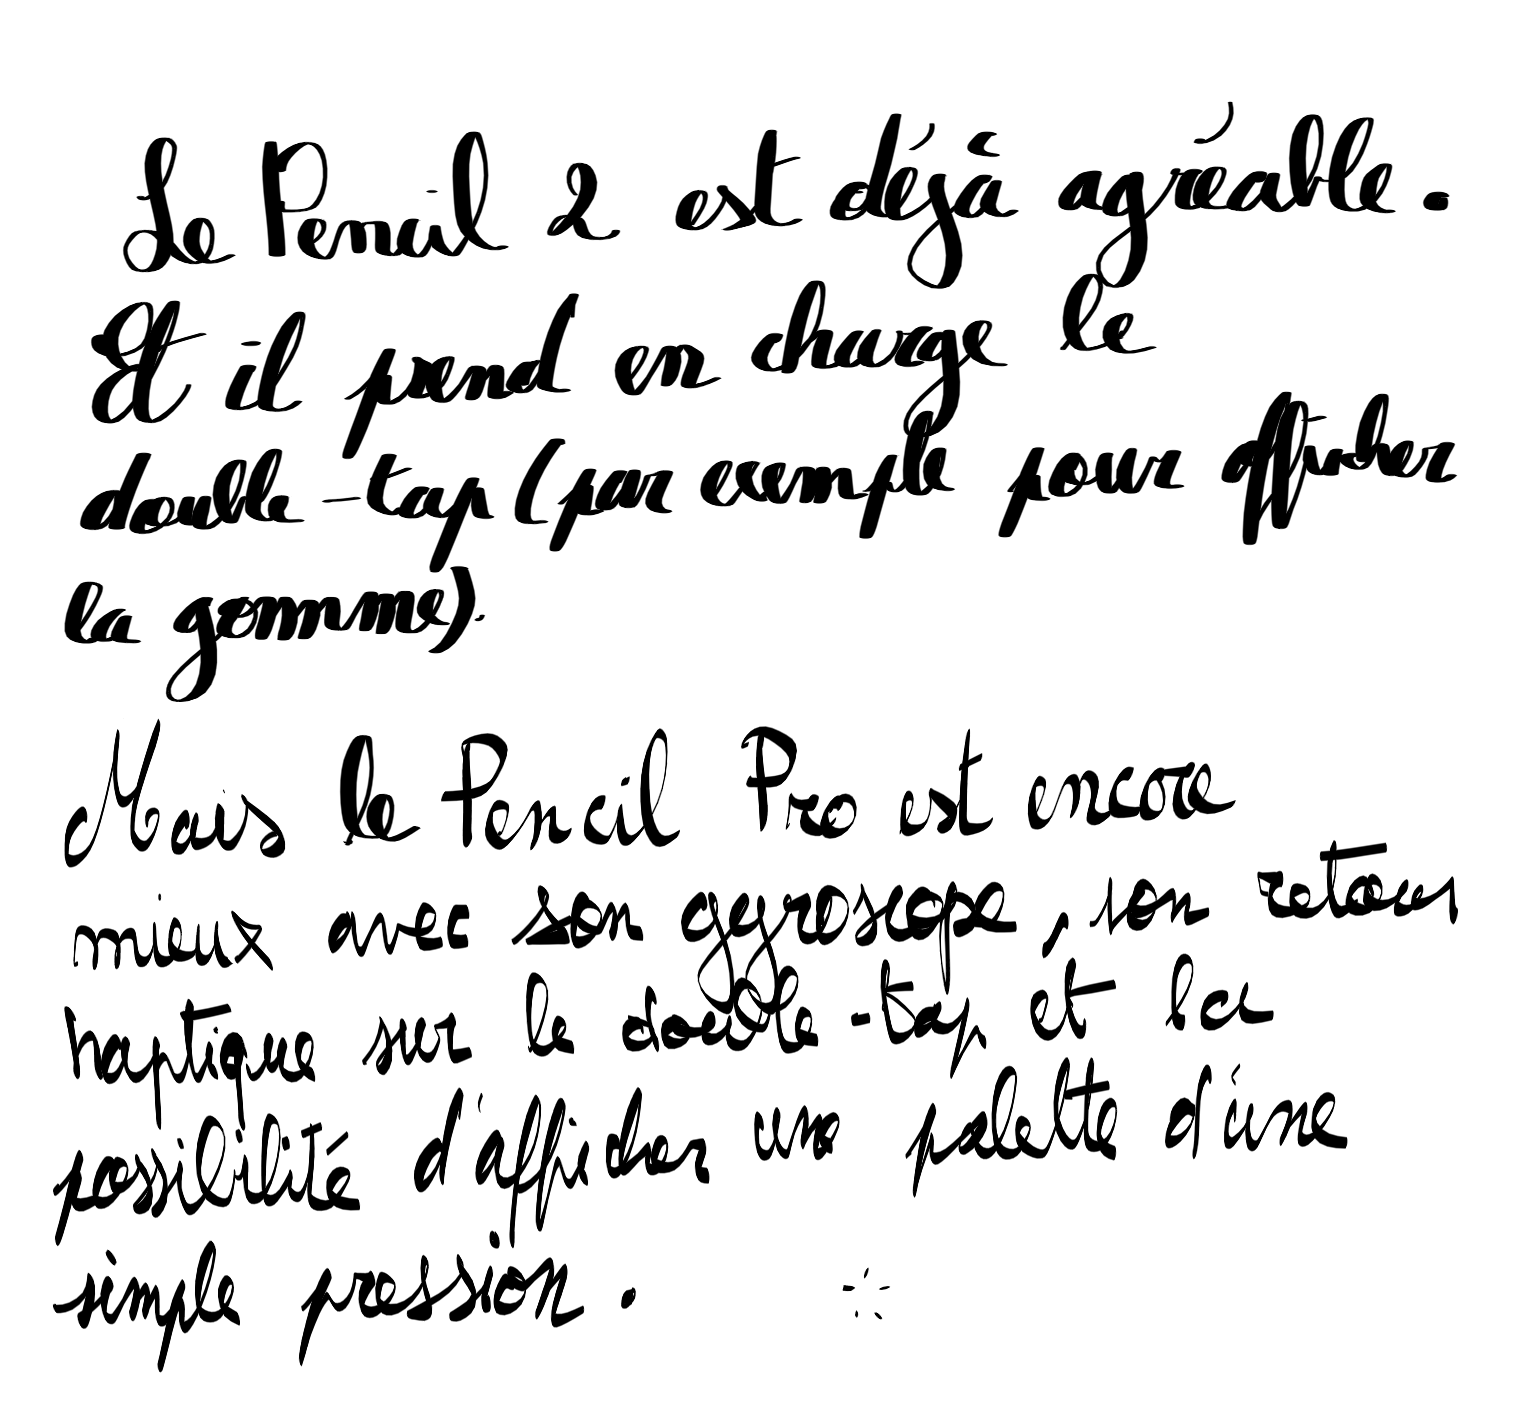 Le Pencil 2 est déjà agréable.
Et il prend en charge le
double-tap (par exemple pour afficher
la gomme).
Mais le Pencil Pro est encore
mieux avec son gyroscope, son retour
haptique sur le double-tap et la
possibilité d'afficher une palette d'une
simple pression.